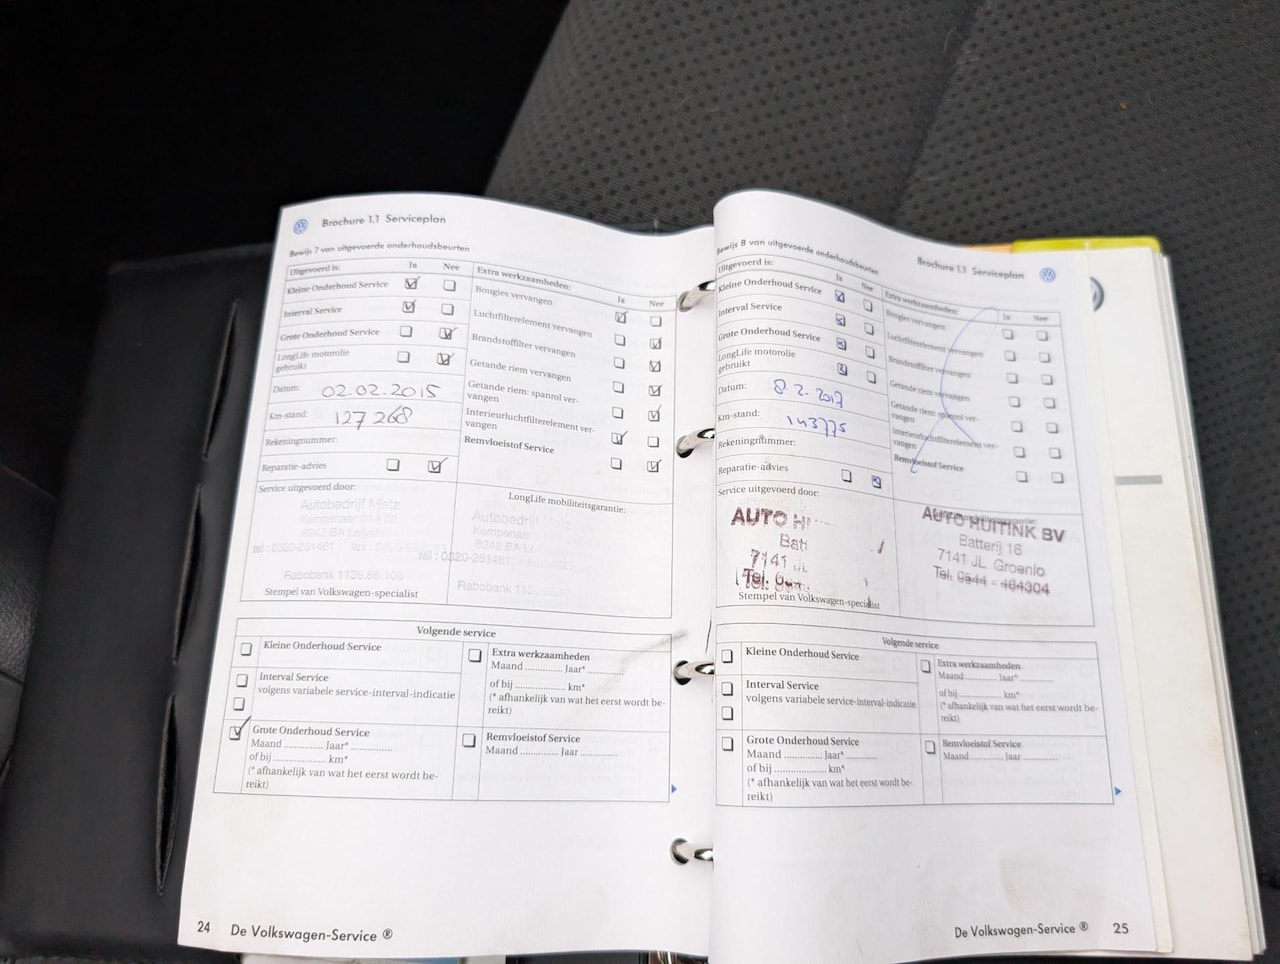 Brochure 1.1 Serviceplan
Bewijs 7 van uitgevoerde onderhoudsbeurten
Uitgevoerd is: Ja Nee
Kleine Onderhoud Service
Interval Service
Grote Onderhoud Service
LongLife motorolie
gebruikt
Datum: 02.02.2015
Km-stand: 127 268
Rekeningnummer:
Reparatie-advies
Extra werkzaamheden: Ja Nee
Bougies vervangen
Luchtfilterelement vervangen
Brandstoffilter vervangen
Getande riem vervangen
Getande riem: spanrol ver-
vangen
Interieurluchtfilterelement ver-
vangen
Remvloeistof Service
Service uitgevoerd door:
Autobedrijf Metz
Kempenaar 01 - 02
8242 BA Lelystad
tel : 0320-251461 fax :
Rabobank 1136.65.106
Stempel van Volkswagen-specialist
LongLife mobiliteitsgarantie:
Autobedrijf Metz
8242 BA Lelystad
tel : 0320-251461
Rabobank
Volgende service
Kleine Onderhoud Service
Interval Service
volgens variabele service-interval-indicatie
Grote Onderhoud Service
Maand ............. Jaar* ..............
of bij ..................... km*
(* afhankelijk van wat het eerst wordt be-
reikt)
Extra werkzaamheden
Maand ............. Jaar* .............
of bij ..................... km*
(* afhankelijk van wat het eerst wordt be-
reikt)
Remvloeistof Service
Maand ............. Jaar .............
24 De Volkswagen-Service ®
Brochure 1.1 Serviceplan
Bewijs 8 van uitgevoerde onderhoudsbeurten
Uitgevoerd is: Ja Nee
Kleine Onderhoud Service
Interval Service
Grote Onderhoud Service
LongLife motorolie
gebruikt
Datum: 8.2.2017
Km-stand: 143775
Rekeningnummer:
Reparatie-advies
Extra werkzaamheden: Ja Nee
Bougies vervangen
Luchtfilterelement vervangen
Brandstoffilter vervangen
Getande riem vervangen
Getande riem: spanrol ver-
vangen
Interieurluchtfilterelement ver-
vangen
Remvloeistof Service
Service uitgevoerd door:
AUTO
7141 JL
Tel.
Stempel van Volkswagen-specialist
mobiliteitsgarantie:
AUTO HUITINK BV
Batterij 16
7141 JL Groenlo
Tel. 0544 - 464304
Volgende service
Kleine Onderhoud Service
Interval Service
volgens variabele service-interval-indicatie
Grote Onderhoud Service
Maand ............. Jaar* .............
of bij ..................... km*
(* afhankelijk van wat het eerst wordt be-
reikt)
Extra werkzaamheden
Maand ............. Jaar* .............
of bij ..................... km*
(* afhankelijk van wat het eerst wordt be-
reikt)
Remvloeistof Service
Maand ............. Jaar .............
De Volkswagen-Service ® 25